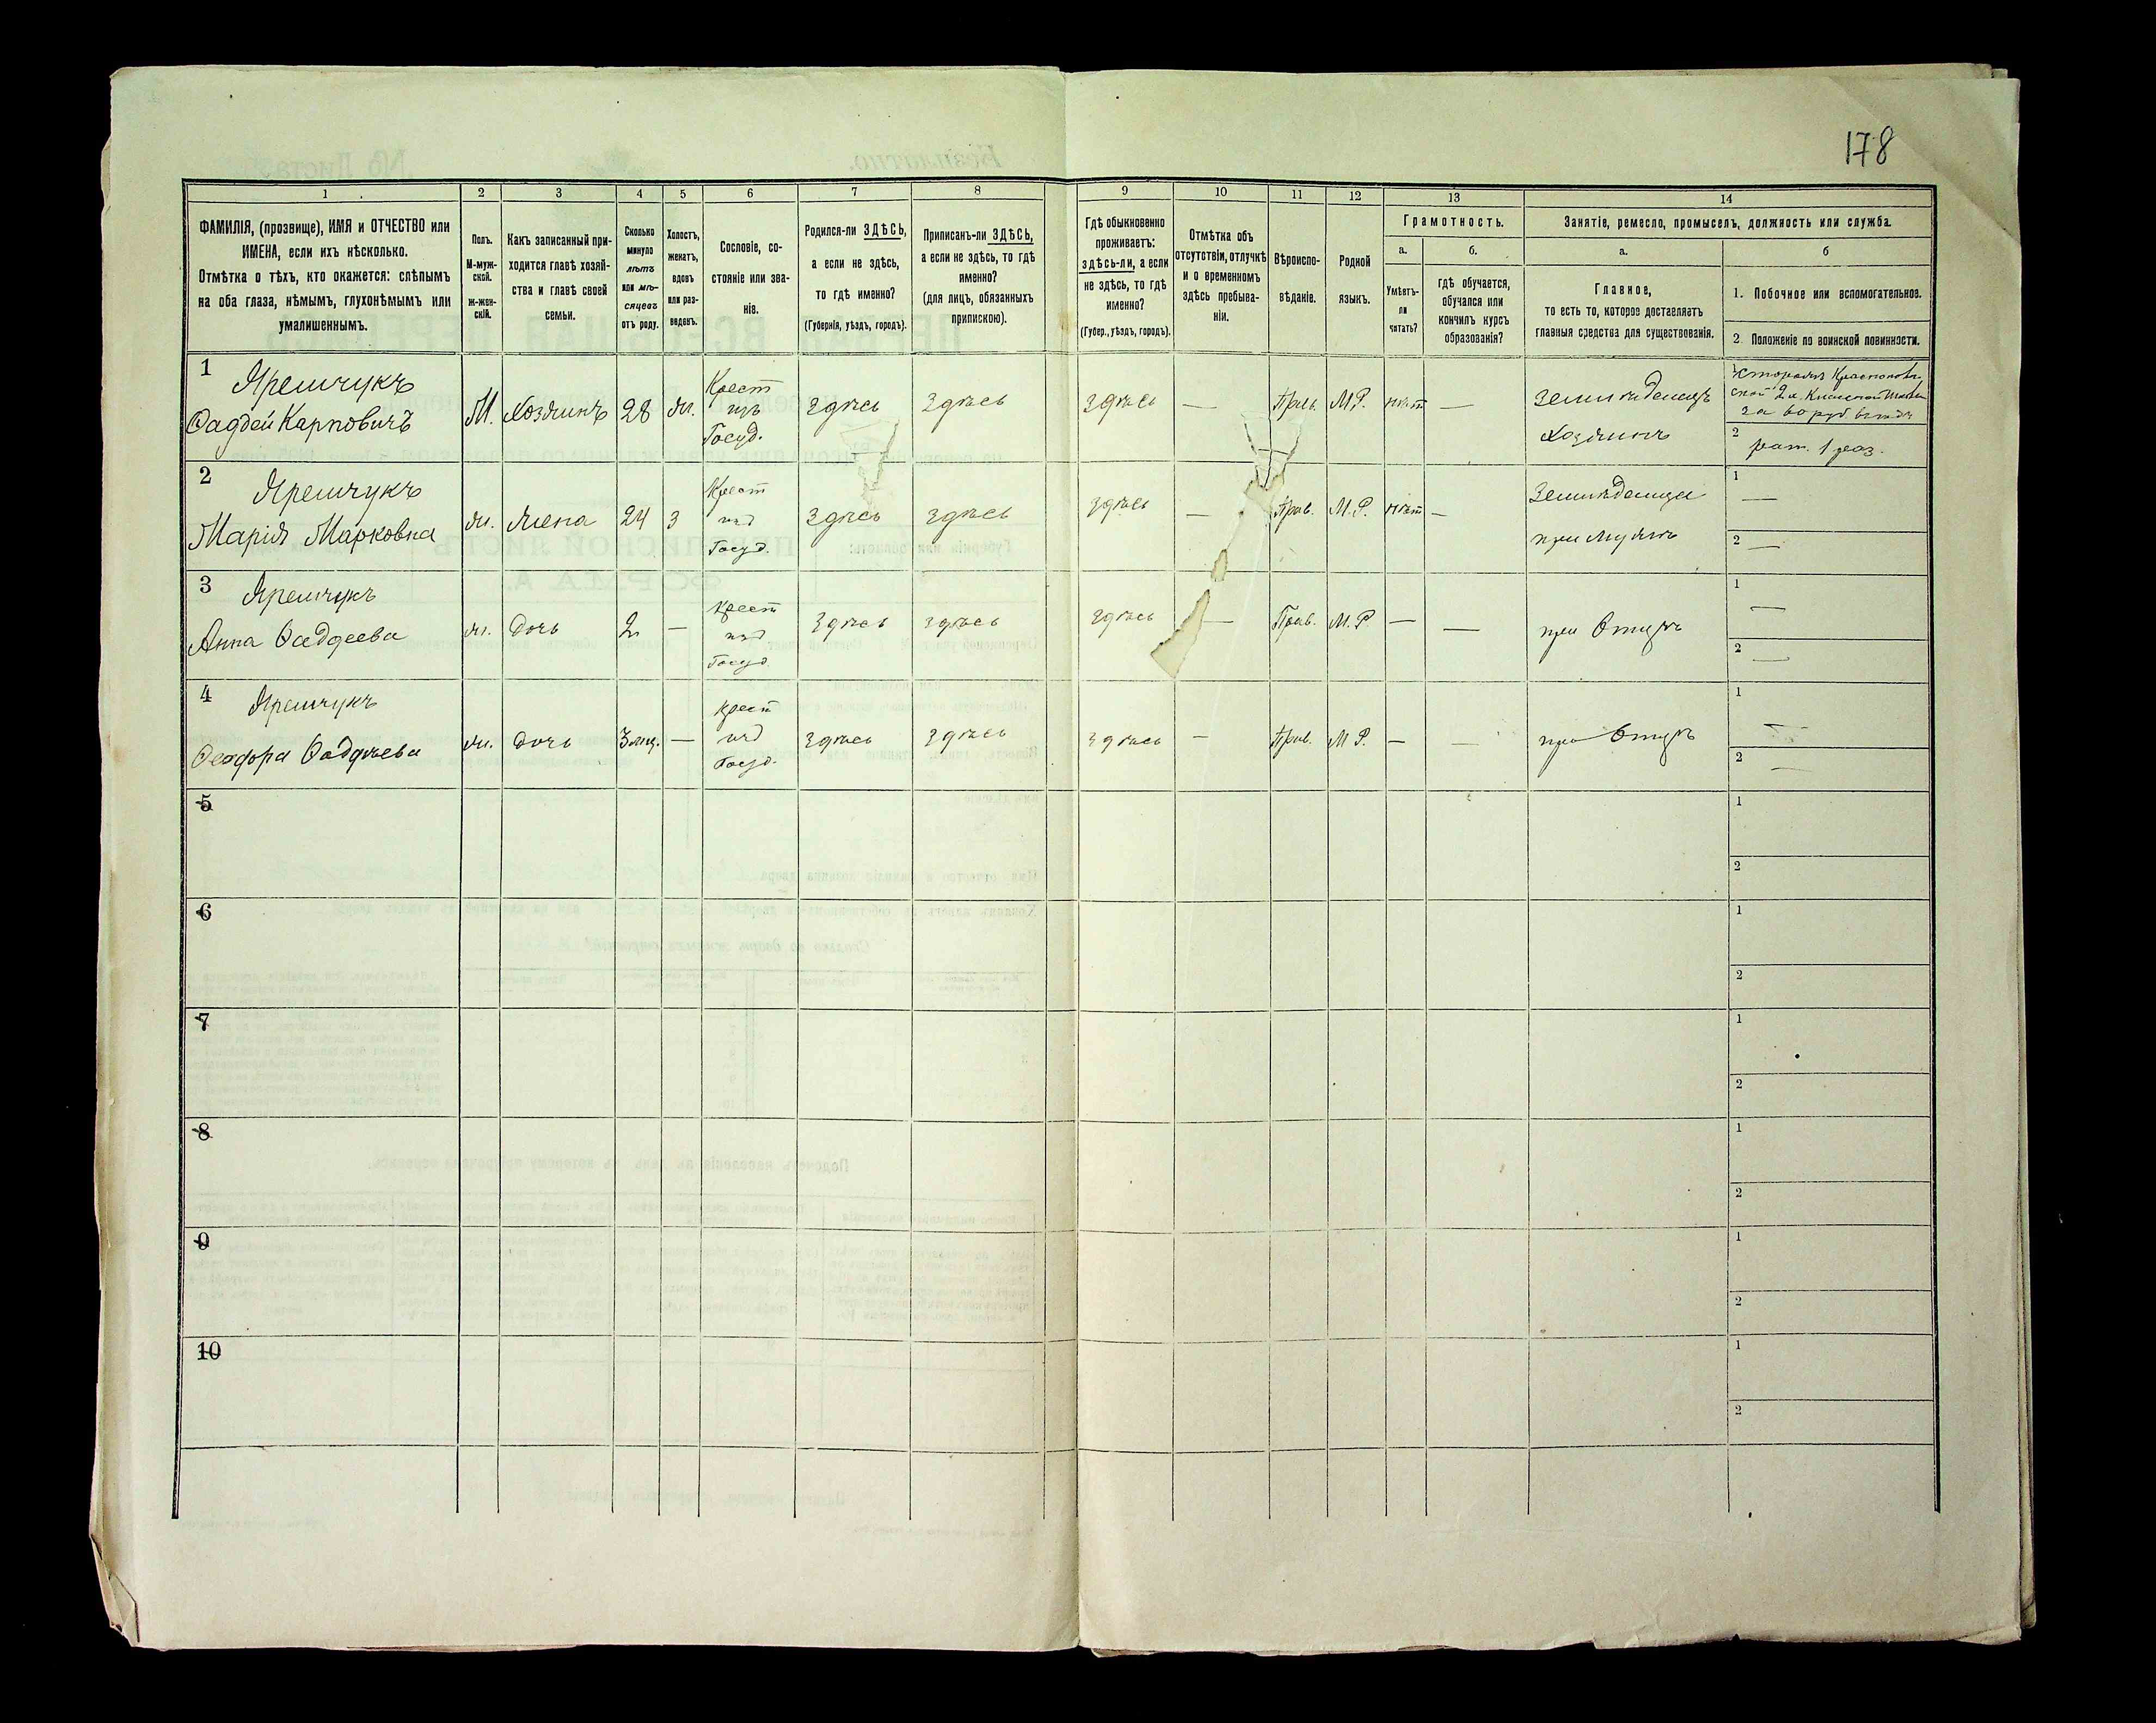 178
1
2
3
4
5
6
7
8
9
10
11
12
13
14
ФАМИЛІЯ, (прозвище), ИМЯ и ОТЧЕСТВО или
ИМЕНА, если ихъ нѣсколько.
Отмѣтка о тѣхъ, кто окажется: слѣпымъ
на оба глаза, нѣмымъ, глухонѣмымъ или
умалишеннымъ.
Полъ.
М-муж-
ской.
Ж-жен-
скій.
Какъ записанный при-
ходится главѣ хозяй-
ства и главѣ своей
семьи.
Сколько
минуло
лѣтъ
или мѣ-
сяцевъ
отъ роду.
Холостъ,
женатъ,
вдовъ
или раз-
веденъ.
Сословіе, со-
стояніе или зва-
ніе.
Родился-ли ЗДѢСЬ,
а если не здѣсь,
то гдѣ именно?
(Губернія, уѣздъ, городъ).
Приписанъ-ли ЗДѢСЬ,
а если не здѣсь, то гдѣ
именно?
(для лицъ, обязанныхъ
припискою).
Гдѣ обыкновенно
проживаетъ:
здѣсь-ли, а если
не здѣсь, то гдѣ
именно?
(Губер., уѣздъ, городъ).
Отмѣтка объ
отсутствіи, отлучкѣ
и о временномъ
здѣсь пребыва-
ніи.
Вѣроиспо-
вѣданіе.
Родной
языкъ.
Грамотность.
а.
Умѣетъ-
ли
читать?
б.
гдѣ обучается,
обучался или
кончилъ курсъ
образованія?
Занятіе, ремесло, промыселъ, должность или служба.
а.
Главное,
то есть то, которое доставляетъ
главныя средства для существованія.
б
1. Побочное или вспомогательное.
2. Положеніе по воинской повинности.
1
Яремчукъ
Фаддей Карповичъ
М.
Хозяинъ
28
ж.
Крест
изъ
Госуд.
Здѣсь
Здѣсь
Здѣсь
—
Прав.
М.Р.
нѣтъ
—
Земледѣлецъ
Хозяинъ
за 60 руб
2
рат. 1 раз.
2
Яремчукъ
Марія Марковна
ж.
жена
24
3
Крест
изъ
Госуд.
Здѣсь
Здѣсь
Здѣсь
—
Прав.
М.Р.
нѣтъ
—
Земледѣлица
при мужѣ
1
—
2
—
3
Яремчукъ
Анна Фаддеева
ж.
дочь
2
—
Крест
изъ
Госуд.
Здѣсь
Здѣсь
Здѣсь
—
Прав.
М.Р
—
—
при Отцѣ
1
—
2
—
4
Яремчукъ
Феодора Фаддѣева
ж.
дочь
3 мѣц.
—
Крест
изъ
Госуд.
Здѣсь
Здѣсь
Здѣсь
—
Прав.
М Р.
—
—
при Отцѣ
1
—
2
—
5
1
2
6
1
2
7
1
2
8
1
2
9
1
2
10
1
2